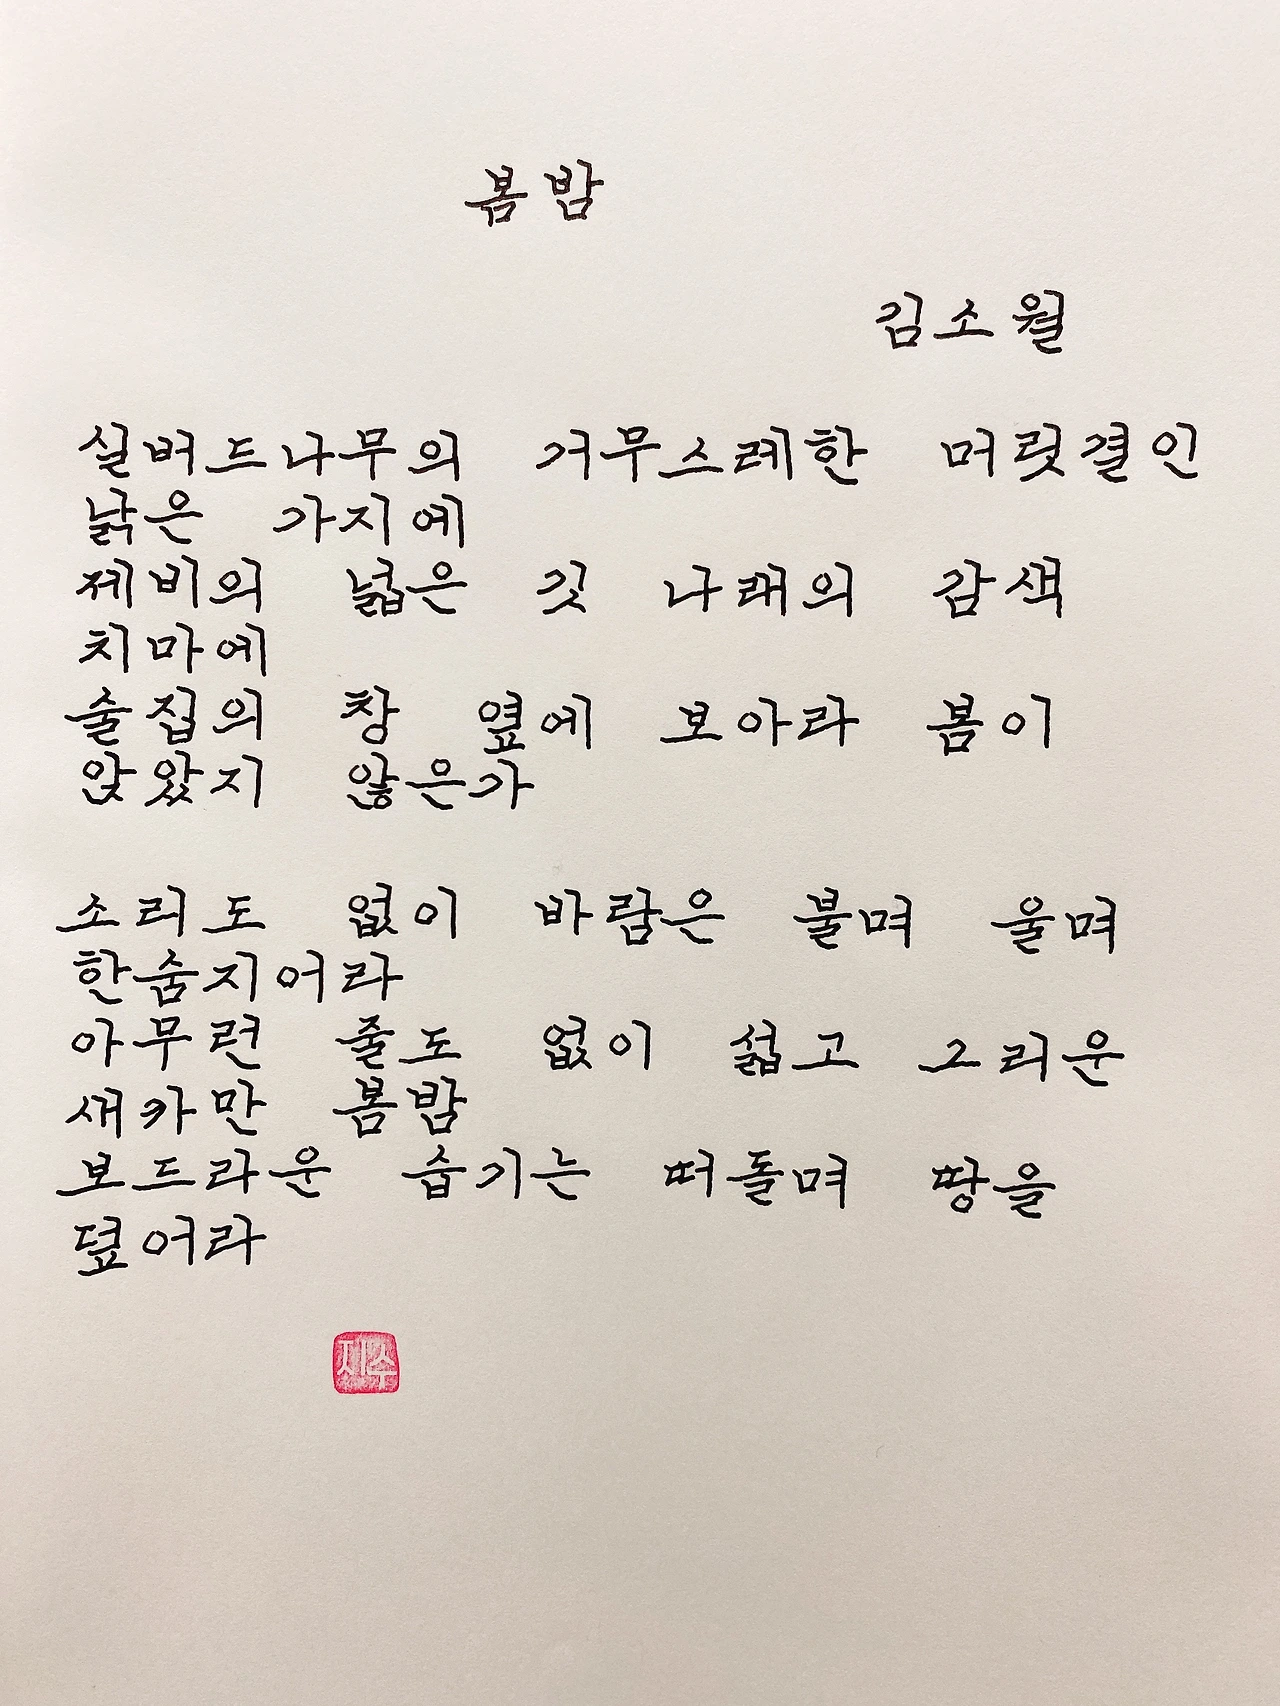 봄밤
김소월
실버드나무의 거무스레한 머릿결인
낡은 가지에
제비의 넓은 깃 나래의 감색
치마에
술집의 창 옆에 보아라 봄이
앉았지 않은가
소리도 없이 바람은 불며 울며
한숨지어라
아무런 줄도 없이 섧고 그리운
새카만 봄밤
보드라운 습기는 떠돌며 땅을
덮어라
재수